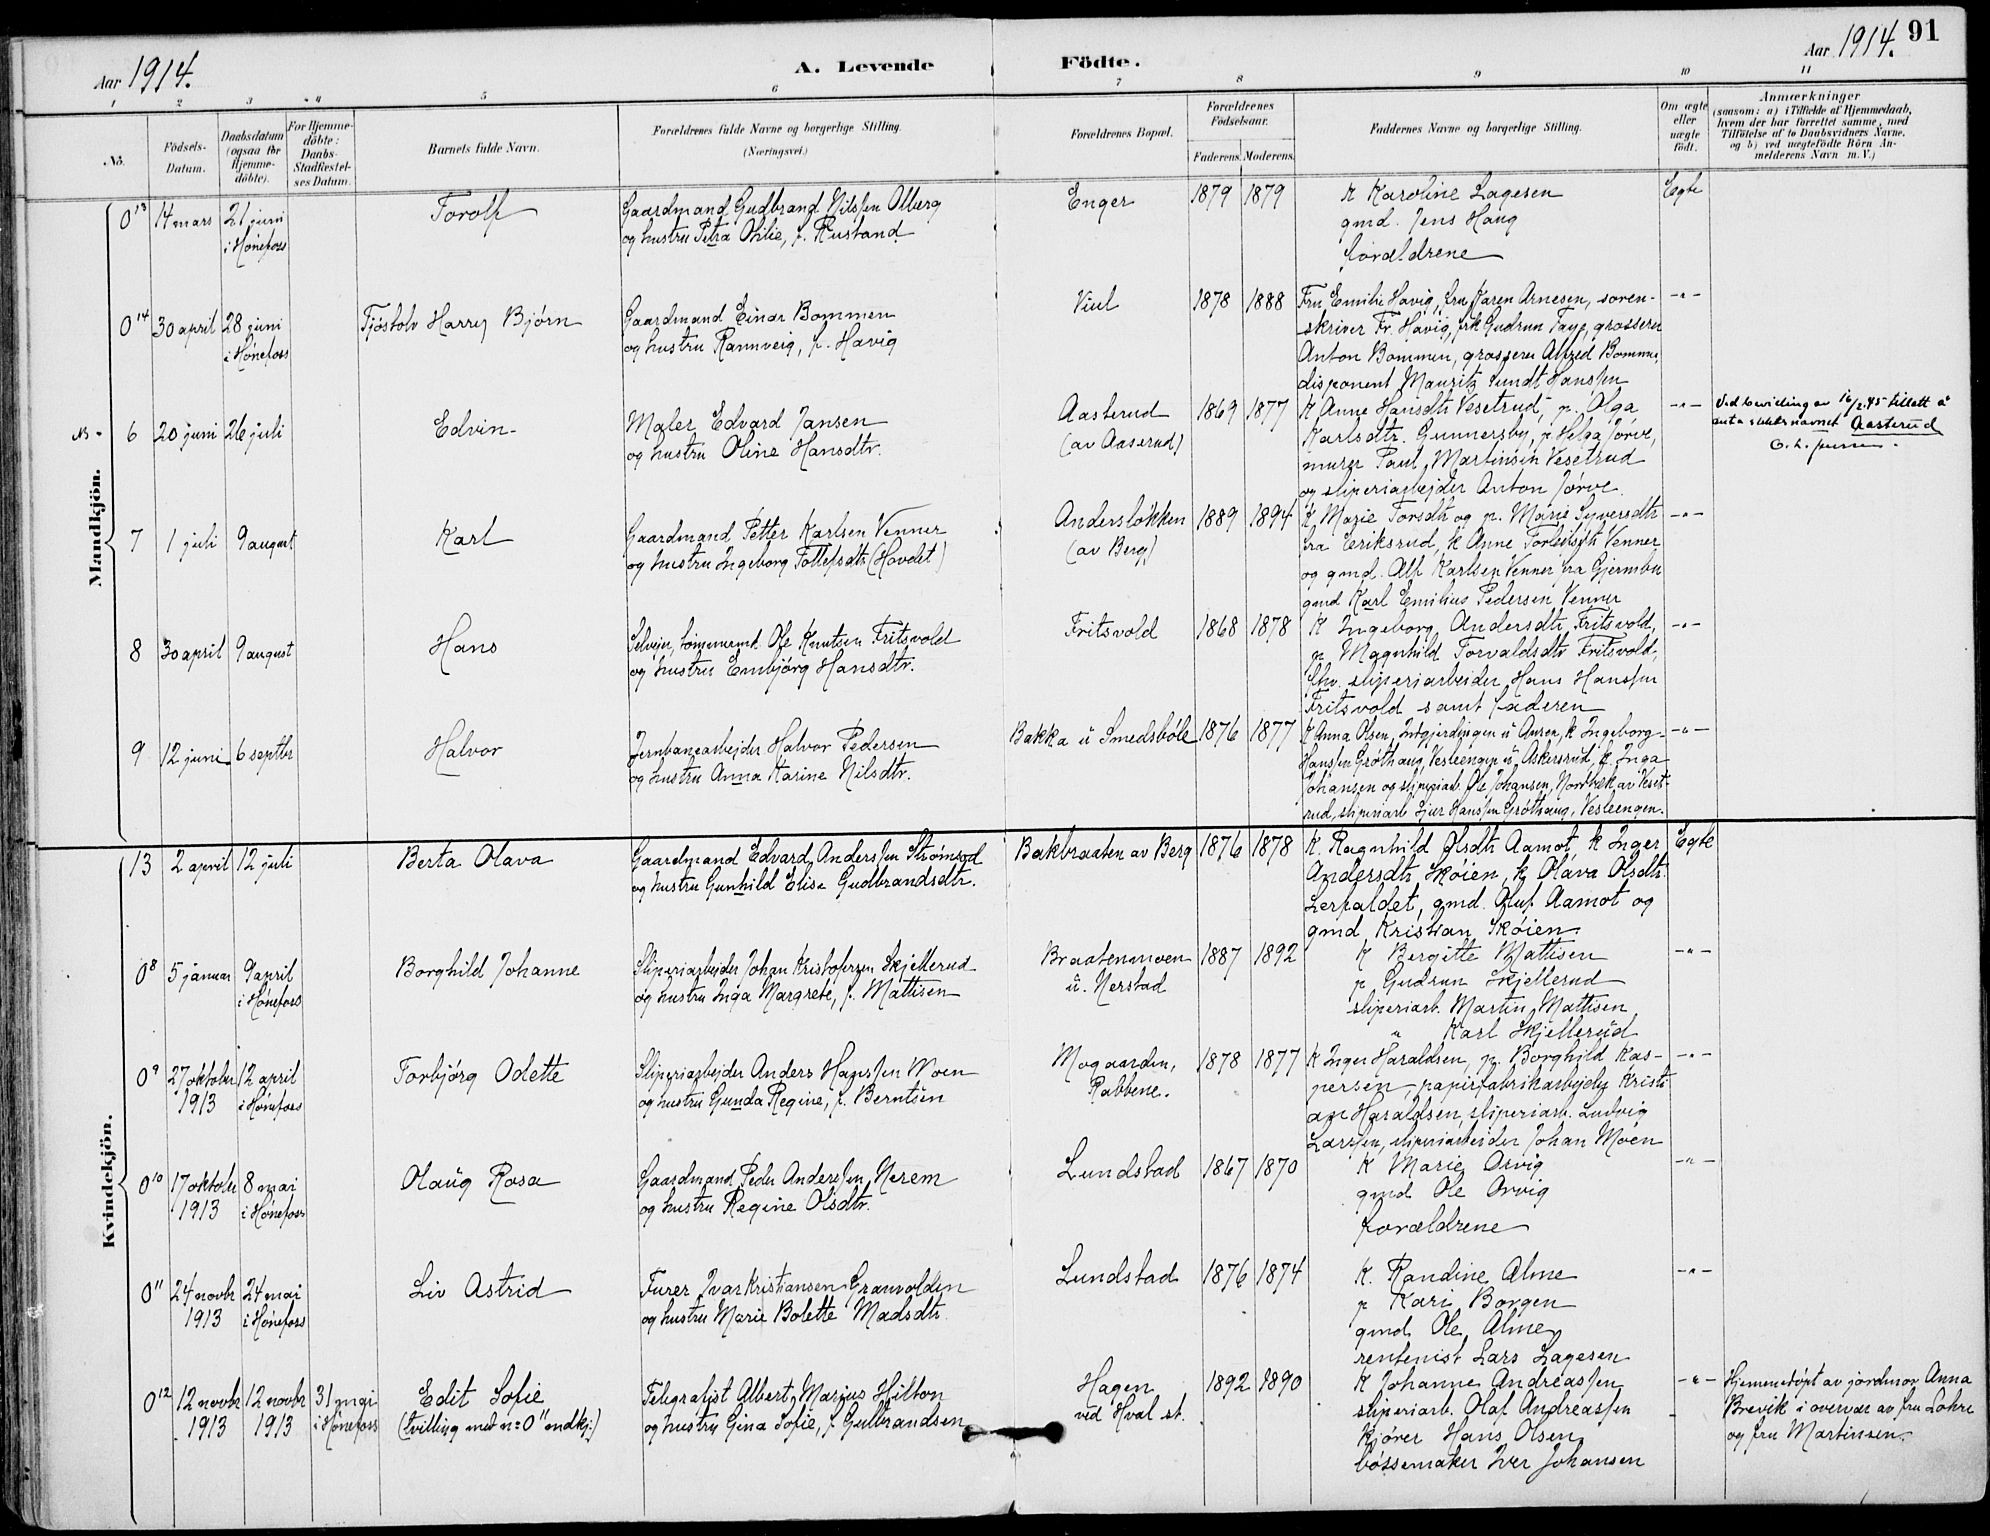 Aar 1914.
A. Levende Födte.
Aar 1914. 91
1 2 3 4 5 6 7 8 9 10 11
No.
Födsels-
Datum.
Daabsdatum
(ogsaa for
Hjemme-
döbte).
For Hjemme-
döbte:
Daabs-
Stadfæstel-
ses Datum.
Barnets fulde Navn.
Forældrenes fulde Navne og borgerlige Stilling.
(Næringsvei.)
Forældrenes Bopæl.
Forældrenes
Födselsaar.
Faderens. Moderens.
Faddernes Navne og borgerlige Stilling.
Om ægte
eller
uægte
födt.
Anmærkninger
(saasom: a) i Tilfælde af Hjemmedaab,
hvem der har forrettet samme, med
Tilföielse af to Daabsvidners Navne,
og b) ved uægtefödte Börn An-
melderens Navn m. V.)
Mandkjön.
0 13 14 mars 21 juni
i Hønefoss
Torolf
Gaardmand Gudbrand Nilssen Olberg
og hustru Petra Otilie, f. Rustand
Enger
1879 1879
K Karoline Lagesen
gmd. Jens Haug
forældrene
Egte
0 14 30 april 28 juni
i Hønefoss
Tjostolv Harry Bjørn
Gaardmand Einar Bommen
og hustru Rannveig, f. Havig
Viul
1878 1888
Fru Emilie Havig, fru Karen Arnesen, soren-
skriver Fr. Havig, frk Gudrun Faye, grosserer
Anton Bommen, grosserer Alfred Bommen,
disponent Mauritz Sundt Hanssen
-"-
NB - 6 20 juni 26 juli
Edvin
Maler Edvard Jansen
og hustru Oline Hansdtr.
Aasterud
(av Aaserud)
1869 1877
K Anne Hansdtr Vesetrud, p. Olga
Karlsdtr. Gunnersby, p Helga Jørve,
murer Paul Martinsen Vesetrud
og sliperiarbejder Anton Jørve.
-"-
Ved bevilling av 16/2.45 tillatt å
anta slektsnavnet Aasterud
7 1 juli 9 august
Karl
Gaardmand Petter Karlsen Venner
og hustru Ingeborg Tollefsdtr (Hovdet)
Andersløkken
(av Berg)
1889 1894
K Marie Torsdtr og p. Marie Syversdtr
fra Eriksrud, k Anne Torleifsdtr Venner
og gmd. Alf Karlsen Venner fra Gjermbu
gmd Karl Emilius Pedersen Venner
-"-
8 30 april 9 august
Hans
Selvejer, tømmermd. Ole Knutsen Fritsvold
og hustru Embjørg Hansdtr.
Fritsvold
1868 1878
K Ingeborg Andersdtr Fritsvold,
p. Magnhild Torvaldsdtr Fritsvold,
sliperiarbeider Hans Hanssen
Fritsvold samt faderen
-"-
9 12 juni 6 septbr
Halvor
Jernbanearbejder Halvor Pedersen
og hustru Anna Karine Nilsdtr.
Bakka u Smedsbøle
1876 1877
K Anna Olsen, Intgjerdingen u Ansen, k Ingeborg
Hanssen Grøthaug, Vesleengen u Askerud, k. Inga
Johansen og sliperiarb. Ole Johansen, Nordbæk av Veset-
rud, sliperiarb Sjur Hanssen Grøthaug, Vesleengen.
-"-
Kvindekjön.
13 2 april 12 juli
Berta Olava
Gaardmand Edvard Anderssen Strømsod
og hustru Gunhild Elise Gudbrandsdtr.
Bakbraaten av Berg
1876 1878
K. Ragnhild Olsdtr Aamot, k Inger
Andersdtr Skøien, k Olava Olsdtr.
Lerfaldet, gmd. Oluf Aamot og
gmd Kristian Skøien
Egte
0 8 5 januar 9 april
i Hønefoss
Borghild Johanne
Sliperiarbejder Johan Kristofersen Skjellerud
og hustru Inga Margrete, f. Mattisen
Braatenmoen
u. Nerstad
1887 1892
K Bergitte Mattisen
p Gudrun Skjellerud
sliperiarb. Martin Mattisen
" Karl Skjellerud
-"-
0 9 27 oktober 12 april
1913 i Hønefoss
Torbjørg Odette
Sliperiarbejder Anders Hanssen Moen
og hustru Gunda Regine, f. Berntsen
Mogaarden,
Rabbene.
1878 1877
K Inger Haraldsen, p. Borghild Kas-
persen, papirfabrikarbejder Kristi
an Haraldsen, sliperiarb. Ludvig
Larssen, sliperiarbejder Johan Moen
-"-
0 10 17 oktober 8 mai
1913 i Hønefoss
Olaug Rosa
Gaardmand Peder Anderssen Nerem
og hustru Regine Olsdtr.
Lundstad
1867 1870
K Marie Orvig
gmd Ole Orvig
forældrene
-"-
0 11 24 novbr 24 mai
1913 i Hønefoss
Liv Astrid
Furer Ivar Kristiansen Granvolden
og hustru Marie Bolette Madsdtr
Lundstad
1876 1874
K. Randine Alme
p Kari Borgen
gmd Ole Alme
rentenist Lars Lagesen
-"-
0 12 12 novbr 12 novbr 31 mai
1913 1913 i Hønefoss
Edit Sofie
(tvilling med nr 0 11 mdkj:)
Telegrafist Albert Marius Hilton
og hustru Gina Sofie, f. Gulbrandsen
Hagen
ved Hval st.
1892 1890
K Johanne Andreassen
sliperiarb. Olaf Andreassen
Kjører Hans Olsen
bøssemaker Iver Johansen
-"-
Hjemmedøpt av jordmor Anna
Brevik i overvær av fru Lohre
og fru Martinsen.